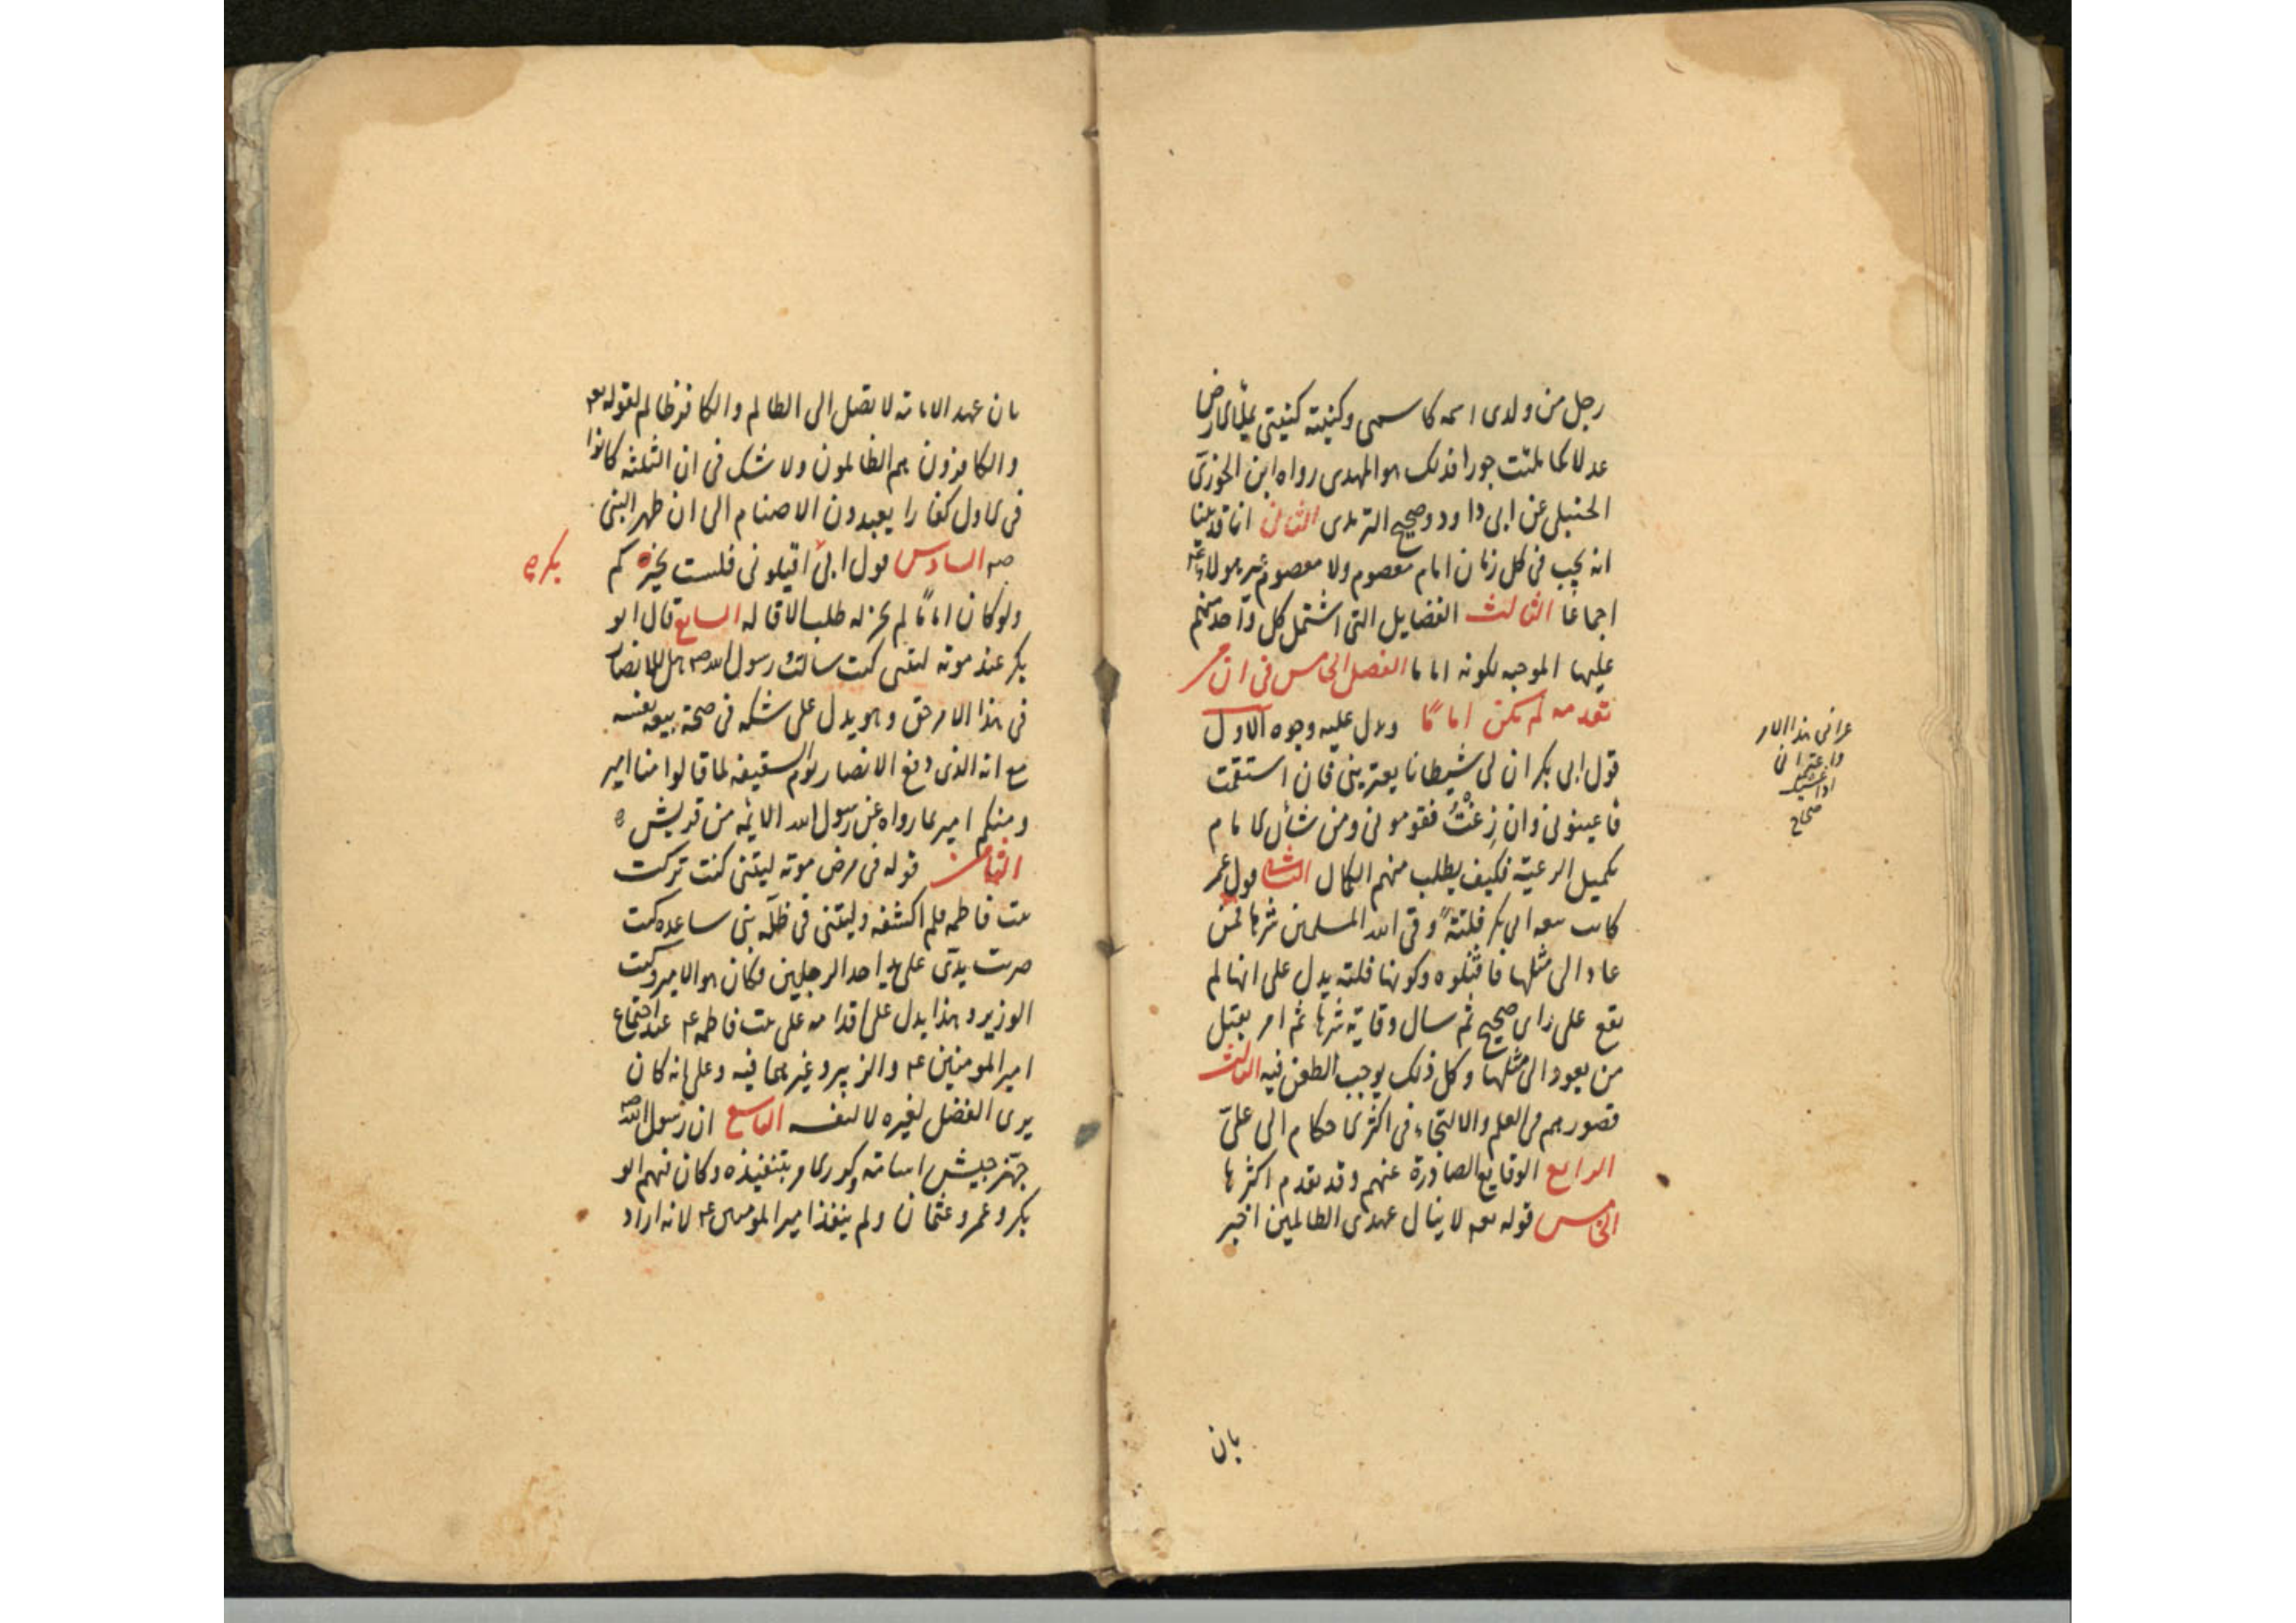 رجل من ولدى اسمه كاسمى وكنيته كنيتى يملأ الارض
عدلا كما ملئت جورا فذلك هو المهدى رواه ابن الجوزى
الحنبلى عن ابى داود وصحيح الترمذى الثانى انا قد بينا
انه يجب فى كل زمان امام معصوم ولا معصوم غير هولاء ع
اجماعا الثالث الفضايل التى اشتمل كل واحد منهم
عليها الموجبه لكونه اماما الفصل الخامس فى ان من
تقدمه لم يكن اماما ويدل عليه وجوه الاول
قول ابى بكر ان لى شيطانا يعترينى فان استقمت
فاعينونى وان زغت فقومونى ومن شأن الامام
تكميل الرعية فكيف يطلب منهم الكمال الثانى قول عمر
كانت بيعه ابى بكر فلتة وقى الله المسلمين شرها فمن
عاد الى مثلها فاقتلوه وكونها فلتة يدل على انها لم
يقع على راى صحيح ثم سال وقاية شرها ثم امر بقتل
من يعود الى مثلها وكل ذلك يوجب الطعن فيه الثالث
قصورهم فى العلم والالتجاء فى اكثر الاحكام الى على
الرابع الوقايع الصادرة عنهم وقد تقدم اكثرها
الخامس قوله تعه لا ينال عهدى الظالمين اخبر
عرانى هذا الامر
واعترانى
اذا غشيك
صحاح
بان
بان عهد الامامة لا تصل الى الظالم والكافر ظالم لقوله تعه
والكافرون هم الظالمون ولا شك فى ان الثلثه كانوا
فى الاول كفارا يعبدون الاصنام الى ان ظهر النبى
صه السادس قول ابى اقيلونى فلست بخيركم
بكر
ولو كان اماما لم يجز له طلب الاقاله السابع قال ابو
بكر عند موته ليتنى كنت سالت رسول الله صه هل للانصار
فى هذا الامر حق وهو يدل على شكه فى صحة بيعه نفسه
مع انه الذى دفع الانصار يوم السقيفه لما قالوا منا امير
ومنكم امير بما رواه عن رسول الله الائمه من قريش
الثامن قوله فى مرض موته ليتنى كنت تركت
بيت فاطمه فلم اكشفه وليتنى فى ظلة بنى ساعده كنت
ضربت يدى على يد احد الرجلين وكان هو الامير وكنت
الوزير وهذا يدل على اقدامه على بيت فاطمه ع عند اجتماع
امير المومنين ع والزبير وغيرهما فيه وعلى انه كان
يرى الفضل لغيره لا لنفسه التاسع ان رسول الله صه
جهز جيش اسامة وكرر الامر بتنفيذه وكان فيهم ابو
بكر وعمر وعثمان ولم ينفذ امير المومنين ع لانه اراد